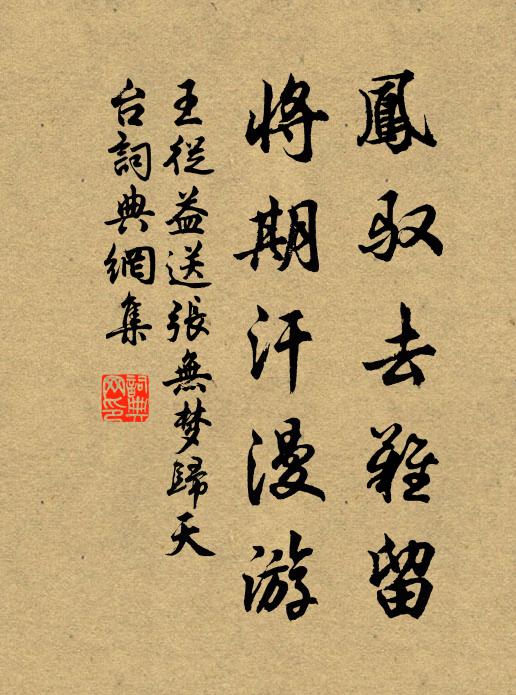 鳳驭去難留
將期汗漫游
王從益送張無梦歸天
台詞典網集
詞典网印